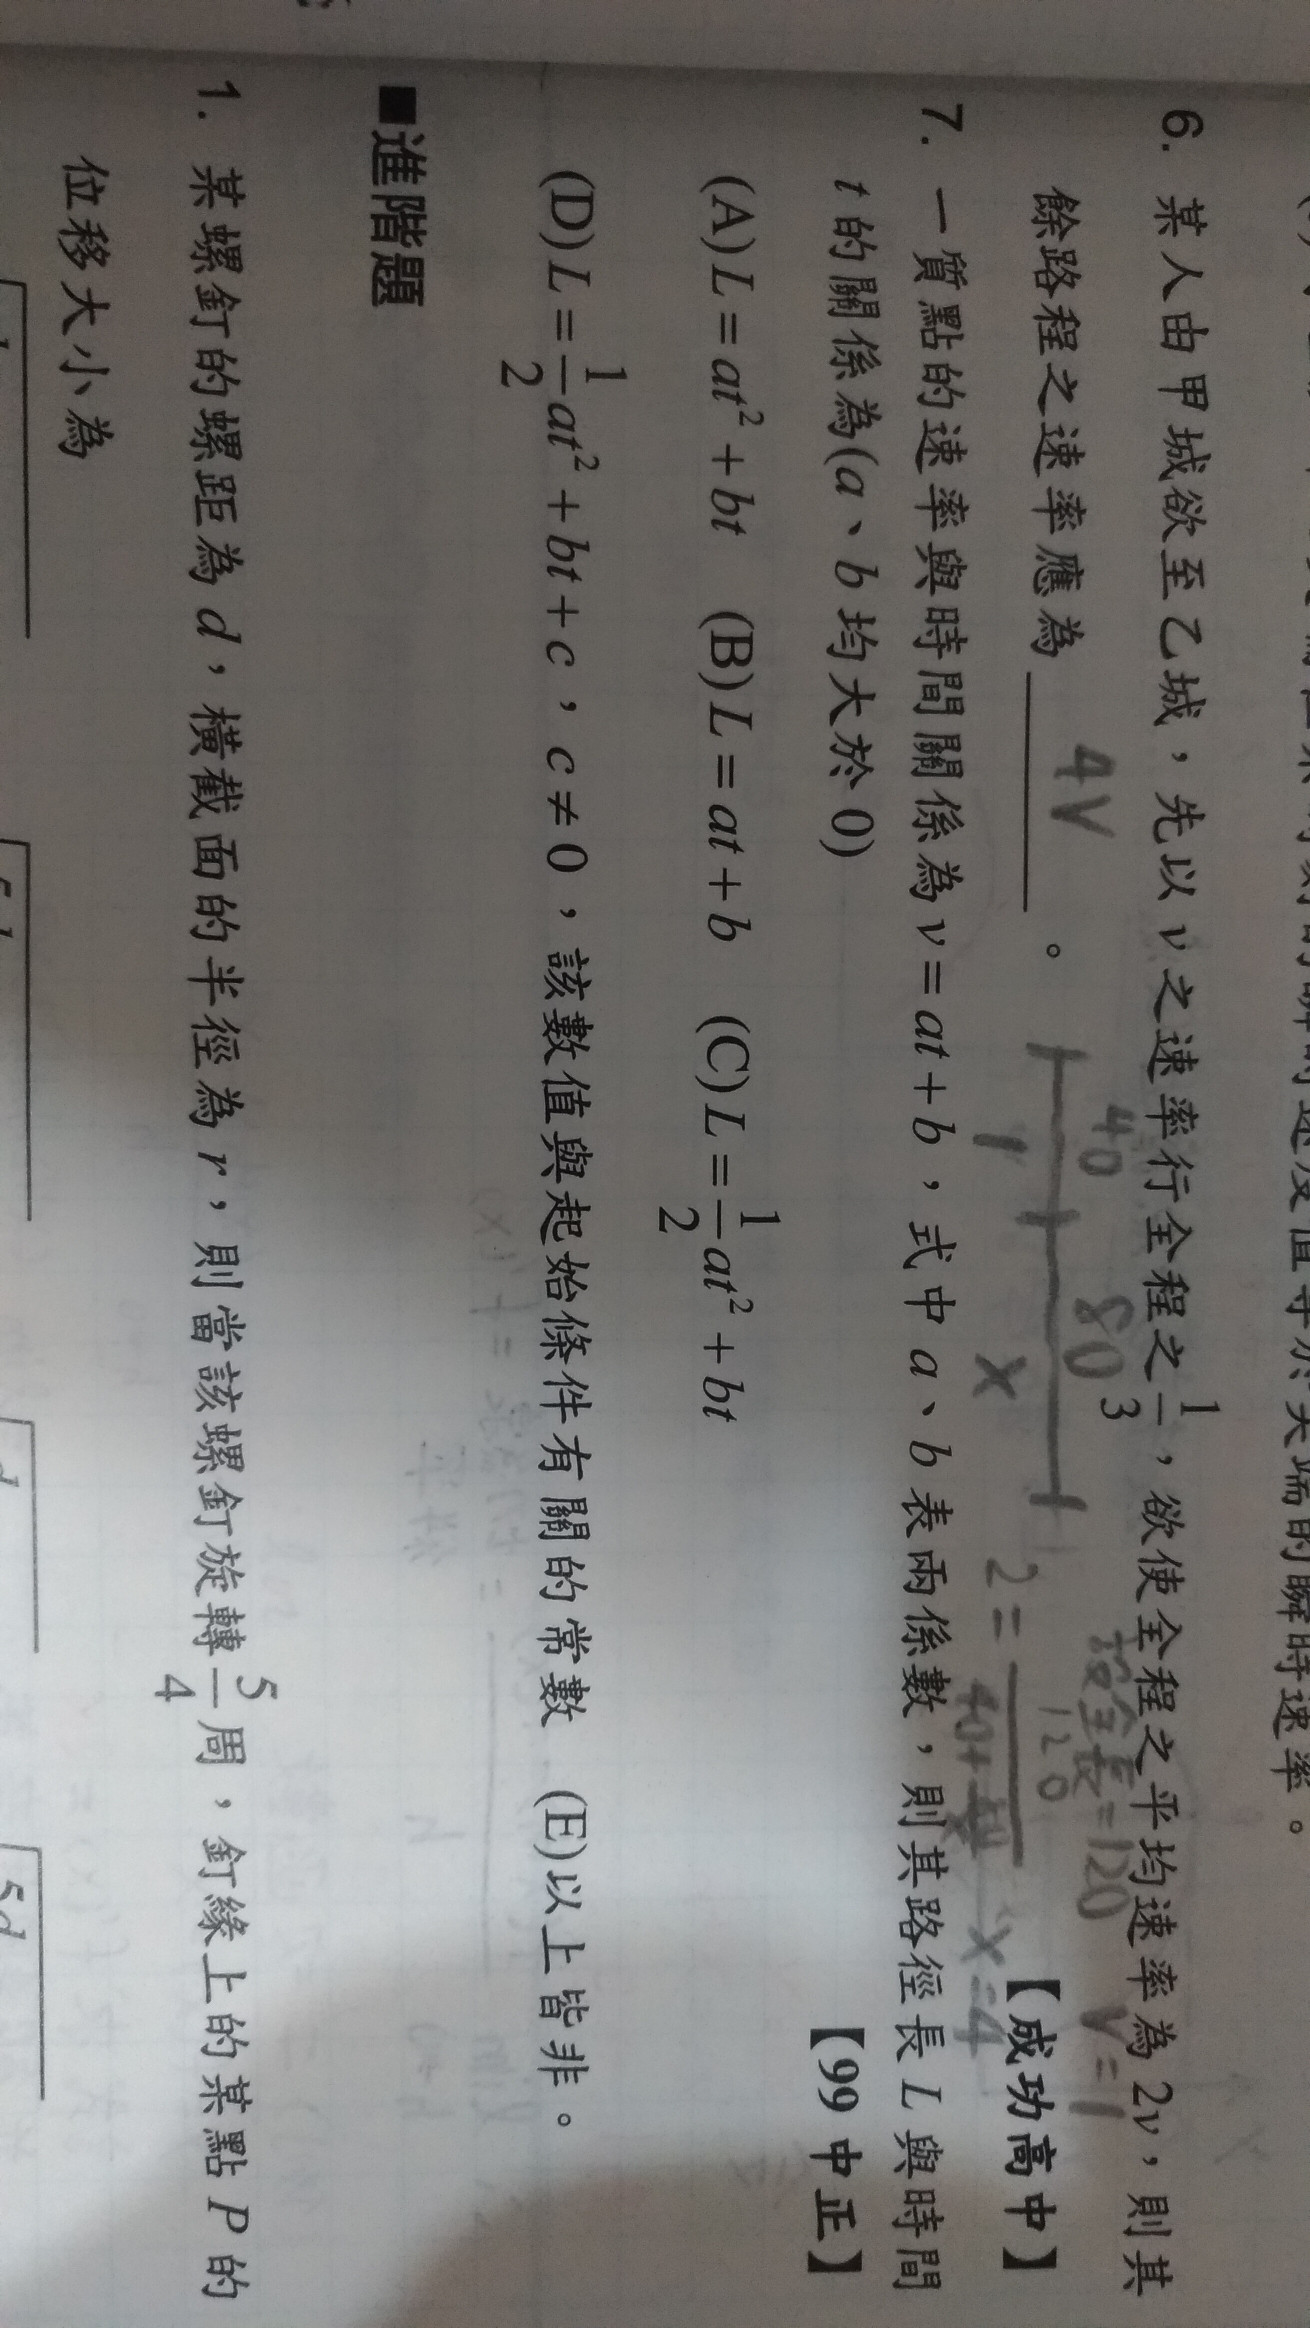 端的瞬時速率。
6. 某人由甲城欲至乙城,先以 v 之速率行全程之 1/3,欲使全程之平均速率為 2v,則其
餘路程之速率應為 4V 。 【成功高中】
40 80
1 x
設全長=120 V=1
2= 120 x=4
7. 一質點的速率與時間關係為 v=at+b,式中 a、b 表兩係數,則其路徑長 L 與時間
t 的關係為(a、b 均大於 0) 【99 中正】
(A) L=at²+bt (B) L=at+b (C) L=1/2at²+bt
(D) L=1/2at²+bt+c,c≠0,該數值與起始條件有關的常數 (E)以上皆非。
■進階題
1. 某螺釘的螺距為 d,橫截面的半徑為 r,則當該螺釘旋轉 5/4 周,釘緣上的某點 P 的
位移大小為